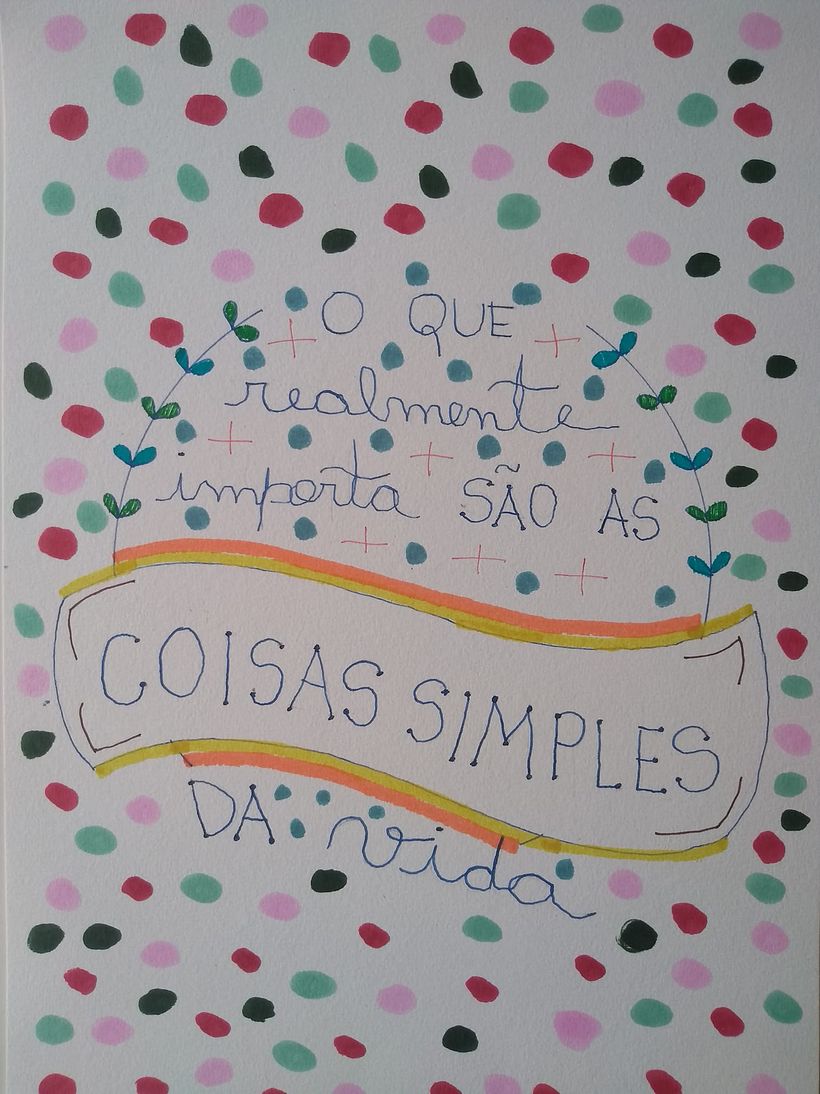 O QUE
realmente
importa SÃO AS
COISAS SIMPLES
DA vida